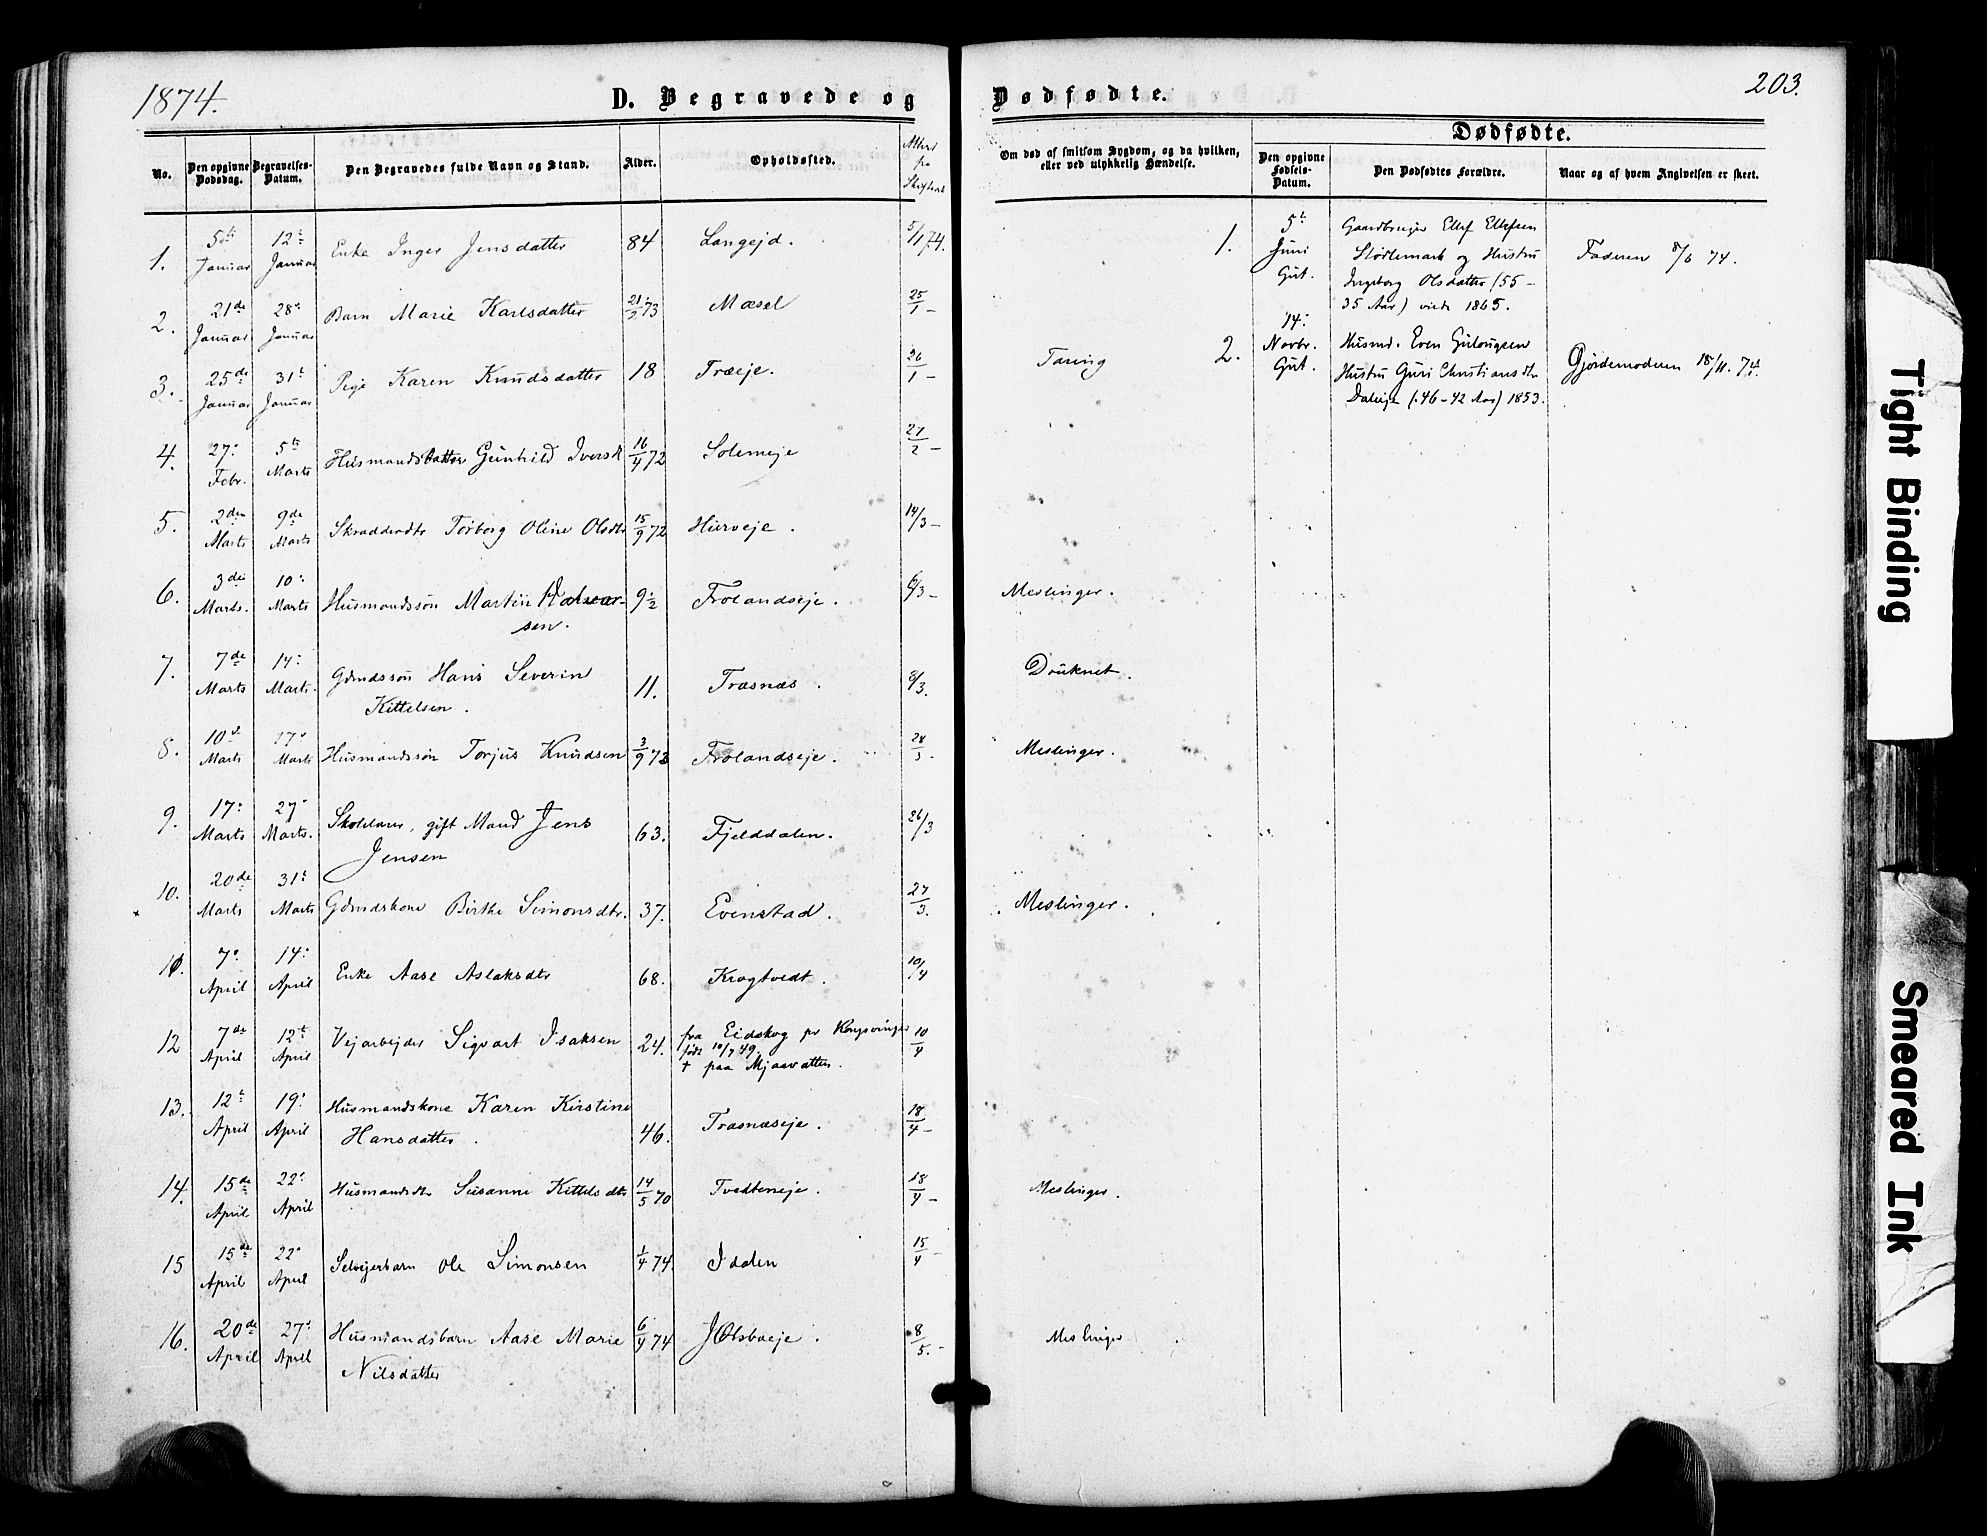 1874.
D. Begravede og
Dødfødte.
203.
No.
Den opgivne Dødsdag.
Begravelses-Datum.
Den Begravedes fulde Navn og Stand.
Alder.
Opholdssted.
Om død af smitsom Sygdom, og da hvilken, eller ved ulykkelig Hændelse.
Dødfødte.
Den opgivne Fødsels-Datum.
Den Dødfødtes Forældre.
Naar og af hvem Angivelsen er skeet.
1. 5te Januar 12te Januar Enke Inger Jensdatter 84 Langejd. 5/1 74.
2. 21de Januar 28de Januar Barn Marie Karlsdatter 73 Mæsel 25/1 -
3. 25de Januar 31te Januar Pige Karen Knudsdatter 18 Træeje. 26/1 - Tæring
4. 27: Febr. 5te Marts Husmandsdatter Gunhild Iversdt 16/4 72 Solemeje 27/2 -
5. 2den Marts 9de Marts Skrædderdtr Torborg Oline Olsdtr 15/9 72 Hurveje. 14/3 -
6. 3die Marts. 10: Marts Husmandssøn Martin Halvor-
sen. 9 1/2 Frolandseje. 6/3 - Meslinger.
7. 7de Marts 14: Marts. Gdmdssøn Hans Severin
Kittelsen. 11. Træsnæs. 8/3. Druknet.
8. 10de Marts 17: Marts Husmandssøn Torjus Knudsen 3/9 73 Frolandseje. 28/3. Meslinger.
9. 17: Marts 27: Marts. gift Mand Jens
Jensen 63. Fjelddalen. 26/3
10. 20de Marts 31te Marts Gdmdskone Birthe Simonsdtr. 37. Evenstad. 27/3. Meslinger.
11. 7de April 14: April Enke Aase Aslaksdtr 68. Krogtvedt. 10/4
12 7de April 12te April Vejarbejder Sigvart Isaksen 24. fra Eidskog pr Kongsvinger
født 10/7 49.
† paa Mjaavatten. 10/4
13. 12te April 19: April Husmandskone Karen Kirstine
Hansdatter. 46. Træsnæseje. 18/4 -
14. 15de April 22: April Husmandsdtr Susanne Kittelsdtr 14/5 70 Tvedteneje. 18/4 - Meslinger.
15 15de April 22: April Selvejerbarn Ole Simonsen 1/4 74. Idalen 15/4 -
16. 20de April 27: April Husmandsbarn Aase Marie
Nilsdatter 6/4 74 8/5. - Meslinger
1. 5te Juni Gut. Gaardbruger Ellef Ellefsen
Stødlemark og Hustru
Ingeborg Olsdatter (55 -
35 Aar) viede 1865.
Faderen 8/6 74.
2. 14: Novbr. Gut. Husmd. Even Gulougsen
Hustru Guri Christiansdtr
Daleje (46 - 42 Aar) 1853.
Gjordemoderen 18/11. 74.
Tight Binding
Smeared Ink